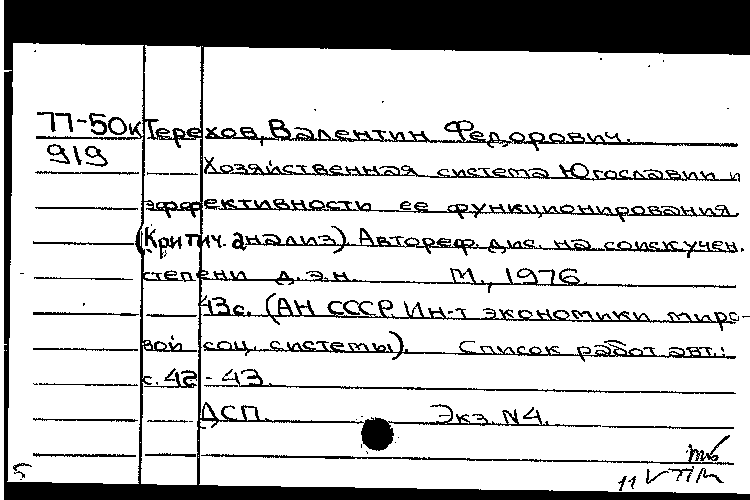 77-50к Терехов, Валентин Федорович.
919
Хозяйственная система Югославии и
эффективности ее функционирования
(Критич. анализ) Автореф дис. на соиск учен.
степени д.э.н. М., 1976
43с. (АН СССР Ин-т экономики миро-
вой соц. системы). Список работ авт.:
с. 42-43.
ДСП. Экз. N4.
5